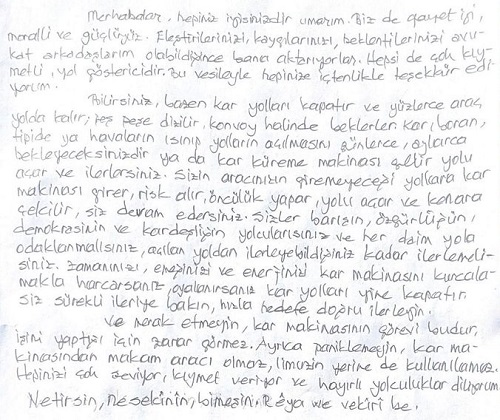 Merhabalar, hepiniz iyisinizdir umarım. Biz de gayet iyi,
moralli ve güçlüyüz. Eleştirilerinizi, kaygılarınızı, beklentilerinizi avu-
kat arkadaşlarım olabildiğince bana aktarıyorlar. Hepsi de çok kıy-
metli, yol göstericidir. Bu vesileyle hepinize içtenlikle teşekkür edi-
yorum.
Bilirsiniz, bazen kar yolları kapatır ve yüzlerce araç
yolda kalır, peş peşe dizilir, konvoy halinde beklerler. Kar, boran,
tipide ya havaların ısınıp yolların açılmasını günlerce, aylarca
bekleyeceksinizdir ya da kar küreme makinası gelir yolu
açar ve ilerlersiniz. Sizin aracınızın giremeyeceği yollara kar
makinası girer, risk alır, öncülük yapar, yolu açar ve kenara
çekilir, siz devam edersiniz. Sizler barışın, özgürlüğün,
demokrasinin ve kardeşliğin yolcularısınız ve her daim yola
odaklanmalısınız, açılan yoldan ilerleyebildiğiniz kadar ilerlemeli-
siniz. Zamanınızı, emeğinizi ve enerjinizi kar makinasını kurcala-
makla harcarsanız, oyalanırsanız kar yolları yine kapatır.
Siz sürekli ileriye bakın, hızla hedefe doğru ilerleyin.
Ve merak etmeyin, kar makinasının görevi budur,
işini yaptığı için zarar görmez. Ayrıca paniklemeyin, kar ma-
kinasından makam aracı olmaz, limuzin yerine de kullanılamaz.
Hepinizi çok seviyor, kıymet veriyor ve hayırlı yolculuklar diliyorum.
Netirsin, nesekinin, bimeşin. Rêya we vekirî be.